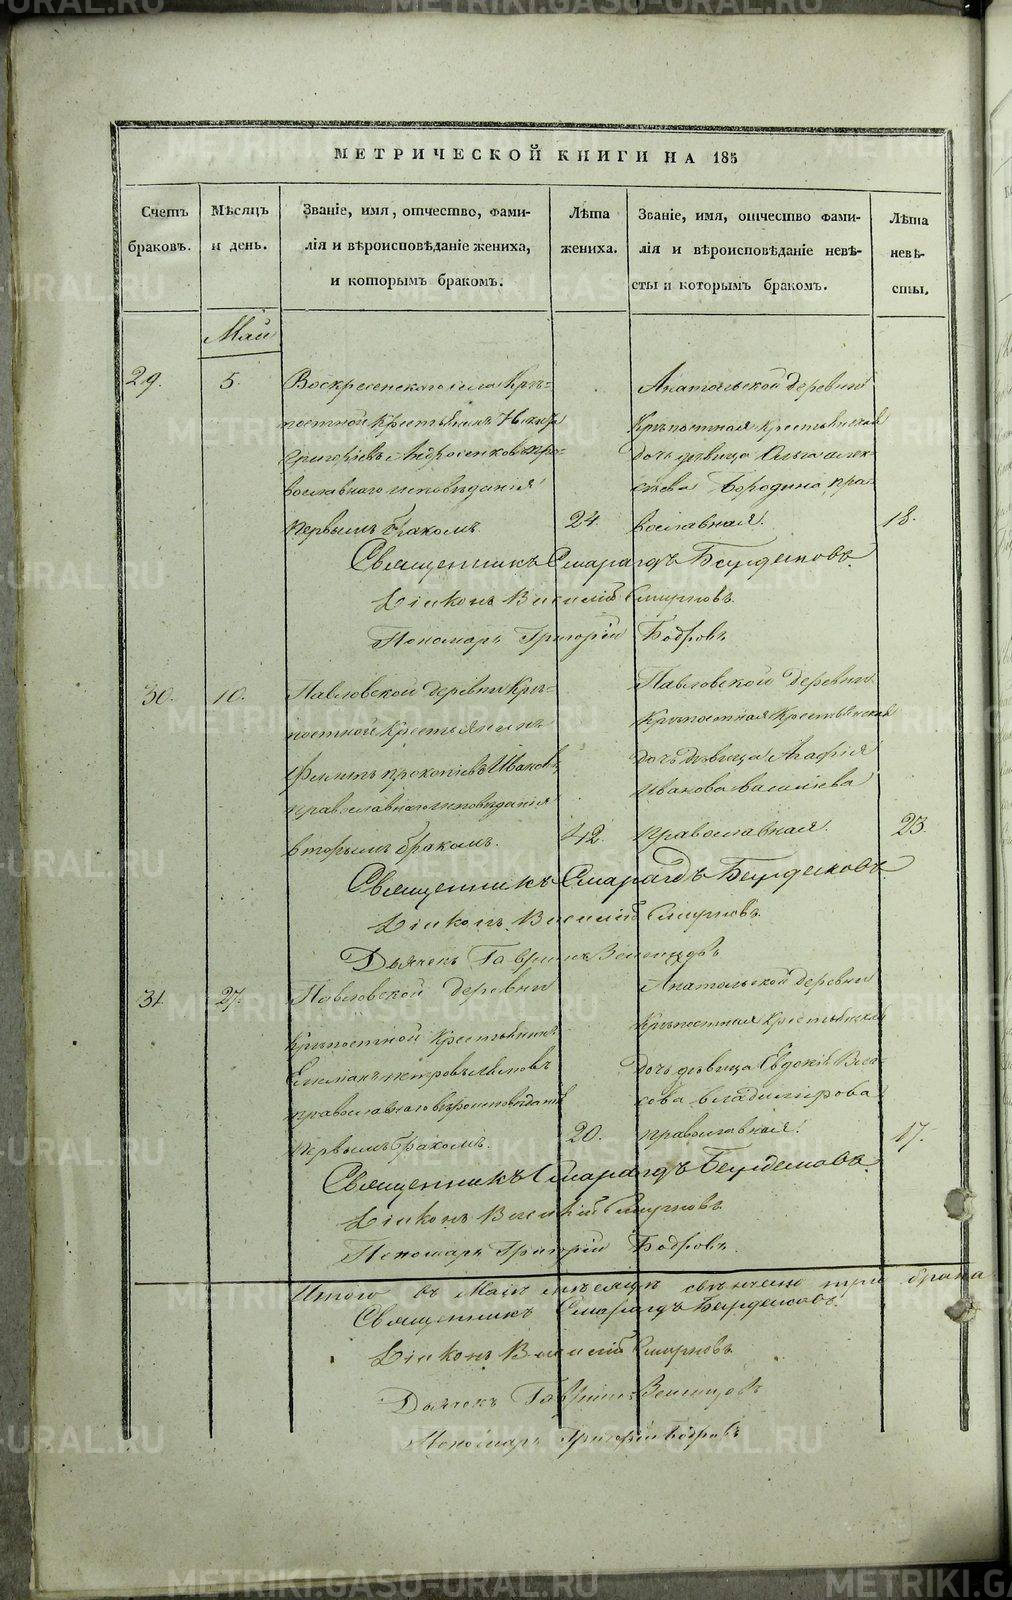 METRIKI.GASO-URAL.RU
МЕТРИЧЕСКОЙ КНИГИ НА 185
Счетъ браковъ.
Мѣсяцъ и день.
Званіе, имя, отчество, фами-
лія и вѣроисповѣданіе жениха,
и которымъ бракомъ.
Лѣта жениха.
Званіе, имя, отчество фами-
лія и вѣроисповѣданіе невѣ-
сты и которымъ бракомъ.
Лѣта невѣ-
сты.
Май
29. 5.
Воскресенскаго села Крѣ-
постной Крестьянинъ
Григорьевъ Андросенковъ пра-
вославнаго исповѣданія
первымъ бракомъ
24.
Анатольской деревни
Крѣпостная крестьянская
дочь девица Ольга Алек-
сѣева Бородина пра-
вославная.
18.
Священникъ Смарагдъ Бурдуковъ
Діаконъ Василій Смирновъ
Пономарь Григорій Бобровъ
30. 10.
Павловской деревни Крѣ-
постной Крестьянинъ
Филипъ Прокопіевъ Ивановъ
православнаго исповѣданія
вторымъ бракомъ.
42.
Павловской деревни
Крѣпостная Крестьянская
дочь девица Агафія
Иванова Василіева
православная.
23.
Священникъ Смарагдъ Бурдуковъ
Діаконъ Василій Смирновъ
Дьячекъ Гавріилъ
31. 27.
Павловской деревни
Крѣпостной Крестьянинъ
Емеліанъ Петровъ
православнаго вероисповѣданія
первымъ бракомъ.
20.
Анатольской деревни
Крѣпостная Крестьянская
дочь девица Евдокія
Владимірова
православная.
17.
Священникъ Смарагдъ Бурдуковъ
Діаконъ Василій Смирновъ
Пономарь Григорій Бобровъ.
Итого въ Маѣ мѣсяцѣ свѣнчано три брака
Священникъ Смарагдъ Бурдуковъ
Діаконъ Василій Смирновъ
Дьячекъ Гавріилъ
Пономарь Григорій Бобровъ